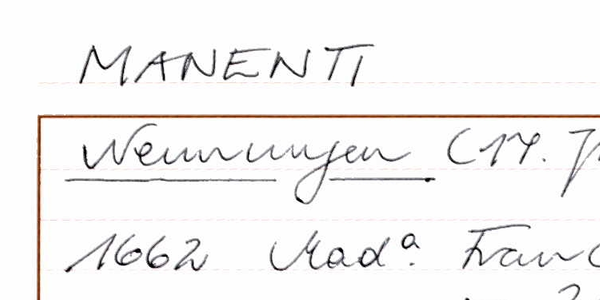 MANENTI
Nennungen (17. J
1662 Mad.ª Fran